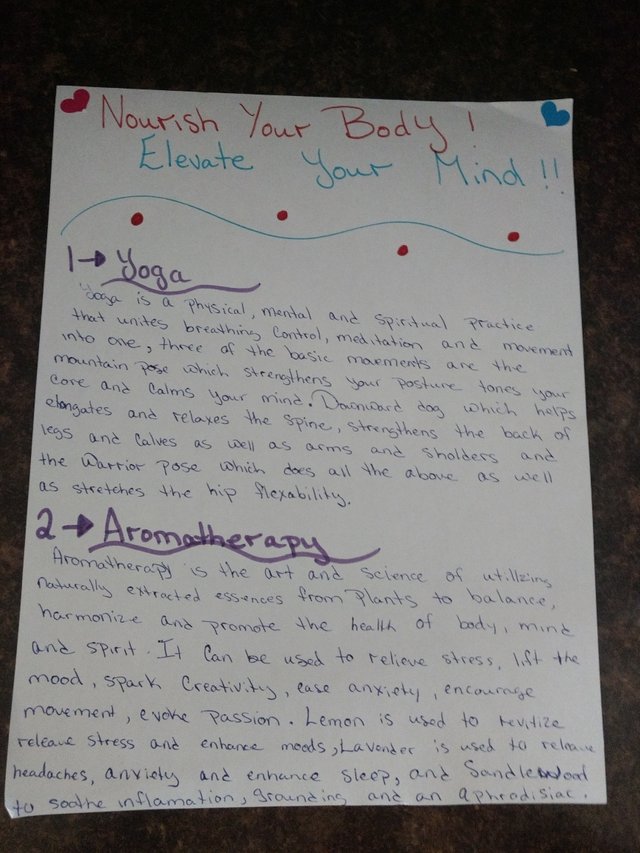 Nourish Your Body !
Elevate Your Mind !!
1→ Yoga
Yoga is a physical, mental and spiritual practice
that unites breathing control, meditation and movement
into one, three of the basic movements are the
mountain pose which strengthens your posture tones your
core and calms your mind. Downward dog which helps
elongates and relaxes the spine, strengthens the back of
legs and calves as well as arms and sholders and
the warrior pose which does all the above as well
as stretches the hip flexability.
2→ Aromatherapy
Aromatherapy is the art and science of utilizing
naturally extracted essences from Plants to balance,
harmonize and promote the health of body, mind
and spirit. It can be used to relieve stress, lift the
mood, spark creativity, ease anxiety, encourage
movement, evoke passion. Lemon is used to revitize
releave stress and enhance moods, Lavender is used to releave
headaches, anxiety and enhance sleep, and Sandlewood
to soothe inflamation, grounding and an aphrodisiac.